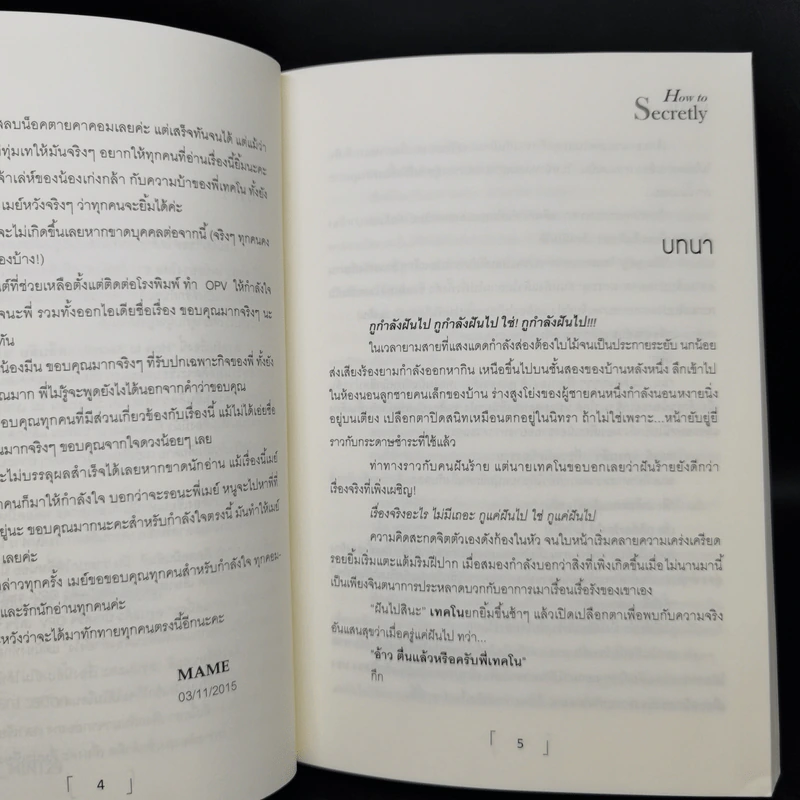 งลบน็อคตายคาคอมเลยค่ะ แต่เสร็จทันจนได้ แต่แม้ว่า
ทุ่มเทให้มันจริงๆ อยากให้ทุกคนที่อ่านเรื่องนี้ยิ้มนะคะ
จ้าเล่ห์ของน้องเก่งกล้า กับความบ้าของพี่เทคโน ทั้งยัง
เมย์หวังจริงๆ ว่าทุกคนจะยิ้มได้ค่ะ
จะไม่เกิดขึ้นเลยหากขาดบุคคลต่อจากนี้ (จริงๆ ทุกคนคง
องบ้าง!)
ต์ที่ช่วยเหลือตั้งแต่ติดต่อโรงพิมพ์ ทำ OPV ให้กำลังใจ
จนะพี่ รวมทั้งออกไอเดียชื่อเรื่อง ขอบคุณมากจริงๆ นะ
ทัน
น้องมีน ขอบคุณมากจริงๆ ที่รับปกเฉพาะกิจของพี่ ทั้งยัง
ณมาก พี่ไม่รู้จะพูดยังไงได้นอกจากคำว่าขอบคุณ
อบคุณทุกคนที่มีส่วนเกี่ยวข้องกับเรื่องนี้ แม้ไม่ได้เอ่ยชื่อ
ณมากจริงๆ ขอบคุณจากใจดวงน้อยๆ เลย
ะไม่บรรลุผลสำเร็จได้เลยหากขาดนักอ่าน แม้เรื่องนี้เมย์
กคนก็มาให้กำลังใจ บอกว่าจะรอนะพี่เมย์ หนูจะไปหาพี่ที่
ยู่นะ ขอบคุณมากนะคะสำหรับกำลังใจตรงนี้ มันทำให้เมย์
เลยค่ะ
ล่าวทุกครั้ง เมย์ขอขอบคุณทุกคนสำหรับกำลังใจ ทุกคอม-
และรักนักอ่านทุกคนค่ะ
หวังว่าจะได้มาทักทายทุกคนตรงนี้อีกนะคะ
MAME
03/11/2015
4
How to
Secretly
บทนำ
กูกำลังฝันไป กูกำลังฝันไป ใช่! กูกำลังฝันไป!!!
ในเวลายามสายที่แสงแดดกำลังส่องต้องใบไม้จนเป็นประกายระยับ นกน้อย
ส่งเสียงร้องยามกำลังออกหากิน เหนือขึ้นไปบนชั้นสองของบ้านหลังหนึ่ง ลึกเข้าไป
ในห้องนอนลูกชายคนเล็กของบ้าน ร่างสูงโย่งของผู้ชายคนหนึ่งกำลังนอนหงายนิ่ง
อยู่บนเตียง เปลือกตาปิดสนิทเหมือนตกอยู่ในนิทรา ถ้าไม่ใช่เพราะ...หน้ายับยู่ยี่
ราวกับกระดาษชำระที่ใช้แล้ว
ท่าทางราวกับคนฝันร้าย แต่นายเทคโนขอบอกเลยว่าฝันร้ายยังดีกว่า
เรื่องจริงที่เพิ่งเผชิญ!
เรื่องจริงอะไร ไม่มีเถอะ กูแค่ฝันไป ใช่ กูแค่ฝันไป
ความคิดสะกดจิตตัวเองดังก้องในหัว จนใบหน้าเริ่มคลายความเคร่งเครียด
รอยยิ้มเริ่มแตะแต้มริมฝีปาก เมื่อสมองกำลังบอกว่าสิ่งที่เพิ่งเกิดขึ้นเมื่อไม่นานมานี้
เป็นเพียงจินตนาการประหลาดบวกกับอาการเมาเรื้อนเรื้อรังของเขาเอง
"ฝันไปสินะ" เทคโนยกยิ้มขึ้นช้าๆ แล้วเปิดเปลือกตาเพื่อพบกับความจริง
อันแสนสุขว่าเมื่อครู่แค่ฝันไป ทว่า...
"อ้าว ตื่นแล้วหรือครับพี่เทคโน"
กึก
5